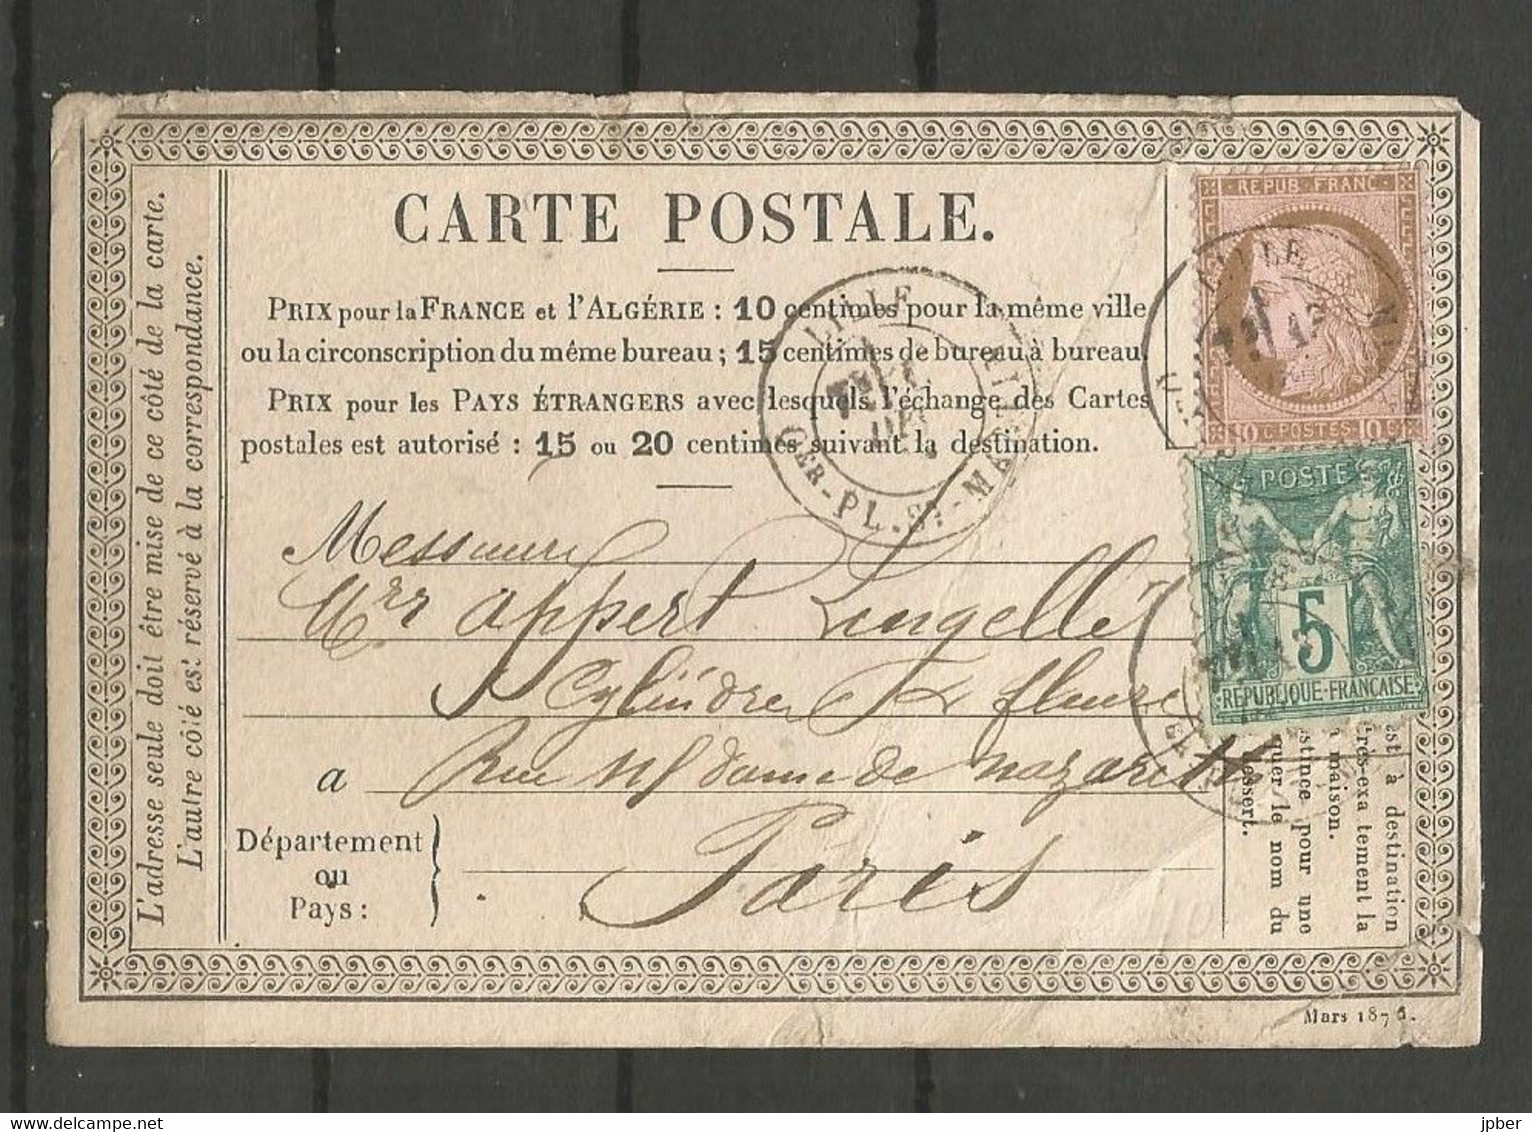 CARTE POSTALE.
PRIX pour la FRANCE et l'ALGÉRIE : 10 centimes pour la même ville
ou la circonscription du même bureau ; 15 centimes de bureau à bureau.
PRIX pour les PAYS ÉTRANGERS avec lesquels l'échange des Cartes
postales est autorisé : 15 ou 20 centimes suivant la destination.
Mrr appert
Cylindres & fleurs
a Rue N d dame de nazareth
Département
ou
Pays :
Paris
L'adresse seule doit être mise de ce côté de la carte.
L'autre côté est réservé à la correspondance.
REPUB FRANC
10 C POSTES 10 C
POSTE
5
REPUBLIQUE FRANCAISE
LILLE
PL. ST-MARTIN
LILLE
est à destination
très-exa tement la
maison.
stince pour une
quer le nom du
dessert.
Mars 1876.
jpber